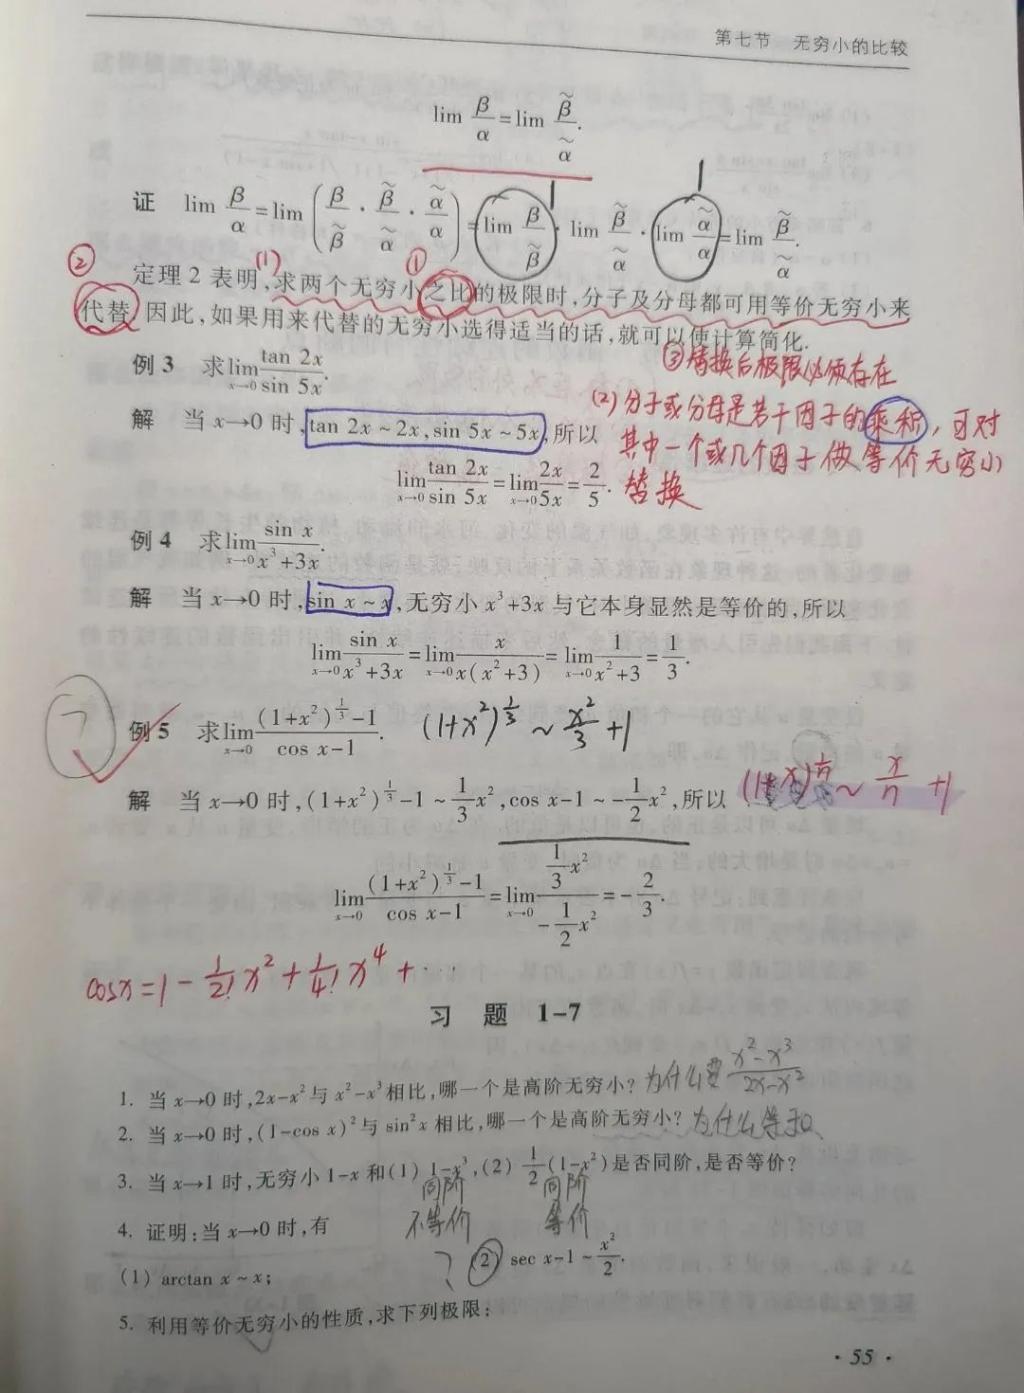 第七节 无穷小的比较
lim β/α = lim β̃/α̃.
1 1
证 lim β/α = lim (β/β̃ · β̃/α̃ · α̃/α) = lim β/β̃ · lim β̃/α̃ · lim α̃/α = lim β̃/α̃.
② (1) ①
定理 2 表明,求两个无穷小之比的极限时,分子及分母都可用等价无穷小来
代替.因此,如果用来代替的无穷小选得适当的话,就可以使计算简化.
③替换后极限必须存在
例 3 求 lim_{x→0} tan 2x / sin 5x.
(2)分子或分母是若干因子的乘积,可对
解 当 x→0 时,tan 2x ~ 2x, sin 5x ~ 5x,所以
其中一个或几个因子做等价无穷小
lim_{x→0} tan 2x / sin 5x = lim_{x→0} 2x/5x = 2/5.
替换
例 4 求 lim_{x→0} sin x / (x³+3x).
解 当 x→0 时,sin x ~ x,无穷小 x³+3x 与它本身显然是等价的,所以
lim_{x→0} sin x / (x³+3x) = lim_{x→0} x / x(x²+3) = lim_{x→0} 1/(x²+3) = 1/3.
例 5 求 lim_{x→0} ((1+x²)^{1/3}-1) / (cos x-1). (1+x²)^{1/3} ~ x²/3 +1
解 当 x→0 时,(1+x²)^{1/3}-1 ~ 1/3 x², cos x-1 ~ -1/2 x²,所以 (1+x)^{1/n} ~ x/n +1
lim_{x→0} ((1+x²)^{1/3}-1) / (cos x-1) = lim_{x→0} (1/3 x²) / (-1/2 x²) = -2/3.
cosx = 1 - 1/2! x² + 1/4! x⁴ + ···
习 题 1-7
1. 当 x→0 时,2x-x² 与 x²-x³ 相比,哪一个是高阶无穷小? 为什么要 (x²-x³)/(2x-x²)
2. 当 x→0 时,(1-cos x)² 与 sin²x 相比,哪一个是高阶无穷小? 为什么等于0
3. 当 x→1 时,无穷小 1-x 和(1) 1-x³,(2) 1/2(1-x²)是否同阶,是否等价?
同阶 同阶
不等价 等价
4. 证明:当 x→0 时,有
(1) arctan x ~ x; ? (2) sec x-1 ~ x²/2.
5. 利用等价无穷小的性质,求下列极限:
· 55 ·